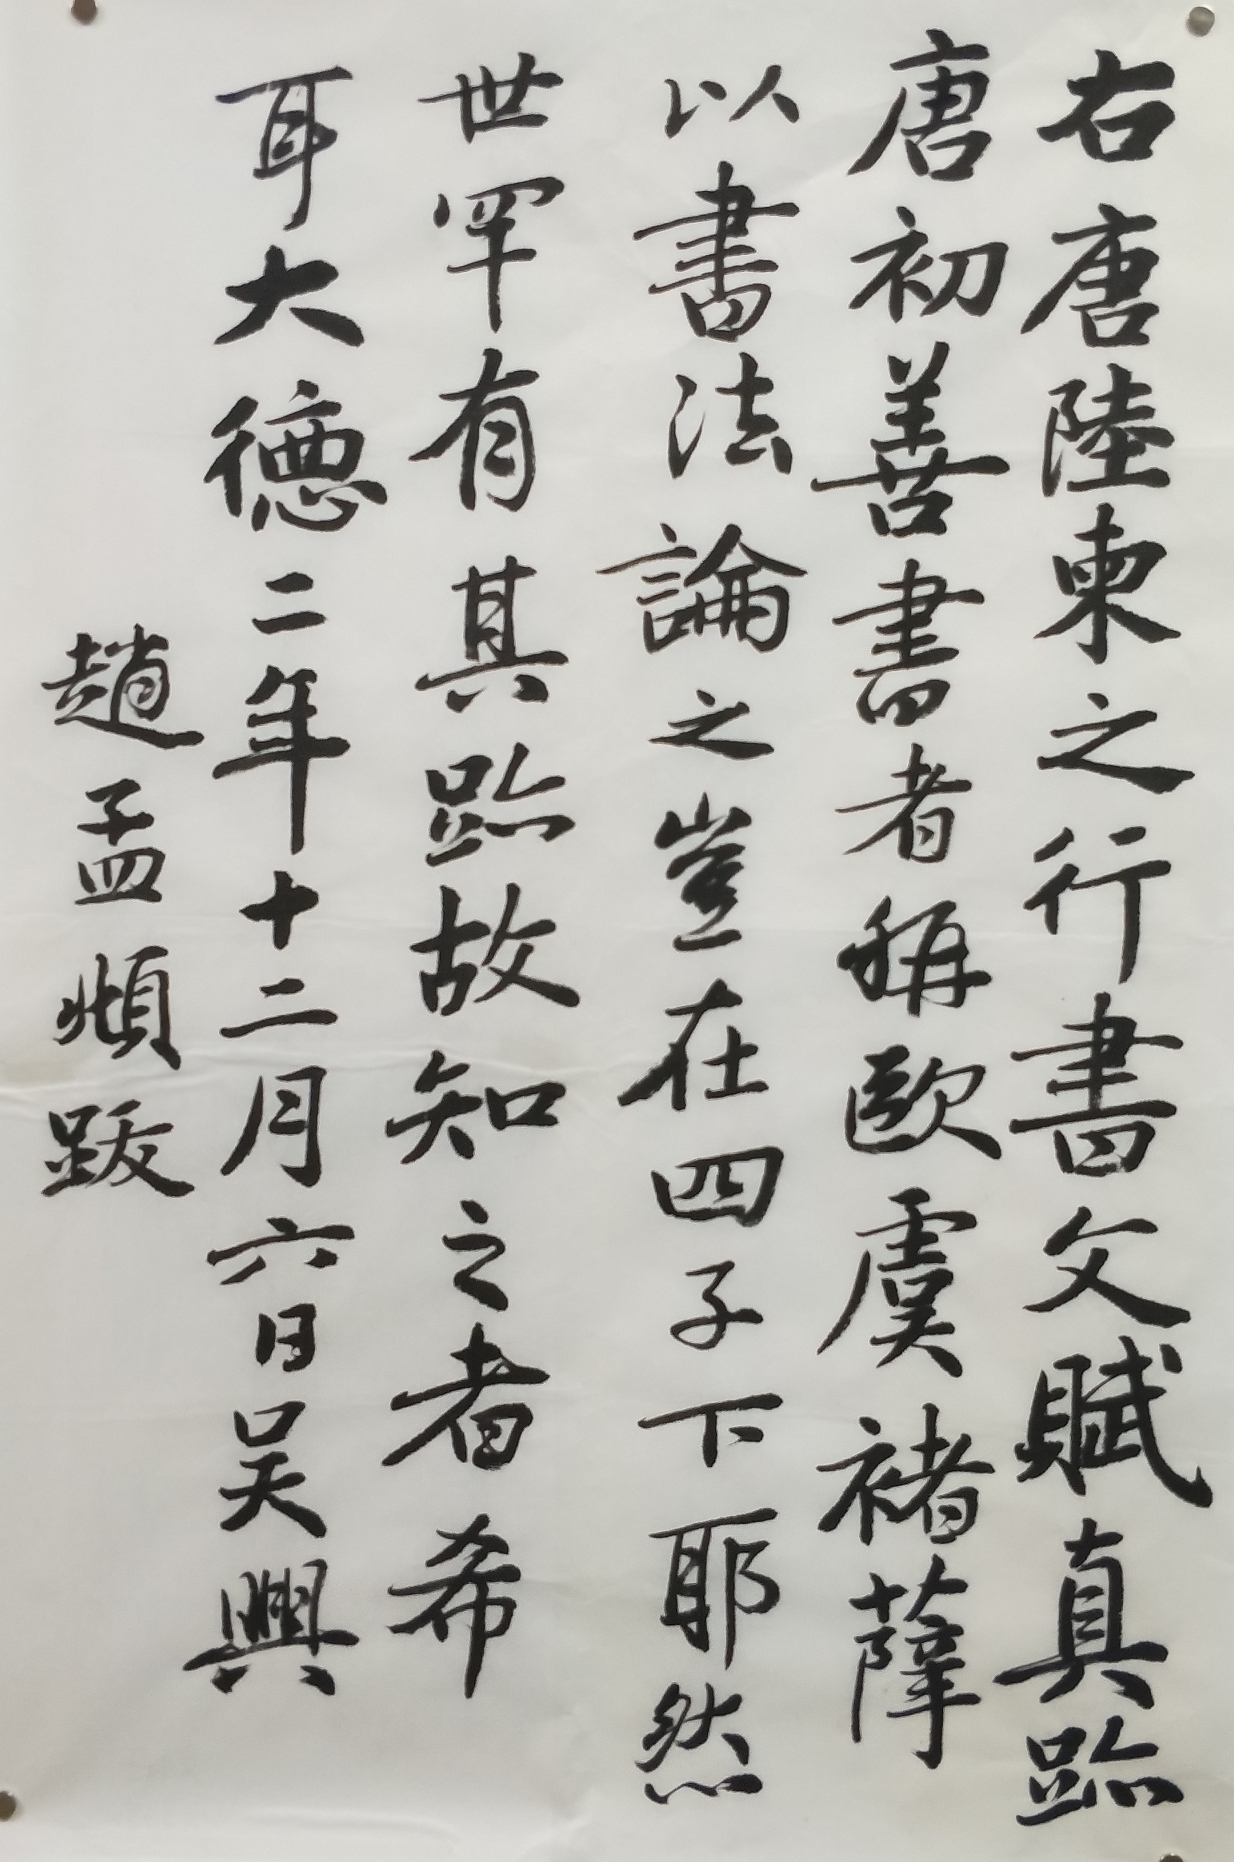 右唐陸柬之行書文賦真跡
唐初善書者稱歐虞褚薛
以書法論之豈在四子下耶然
世罕有其跡故知之者希
耳大德二年十二月六日吴興
趙孟頫跋